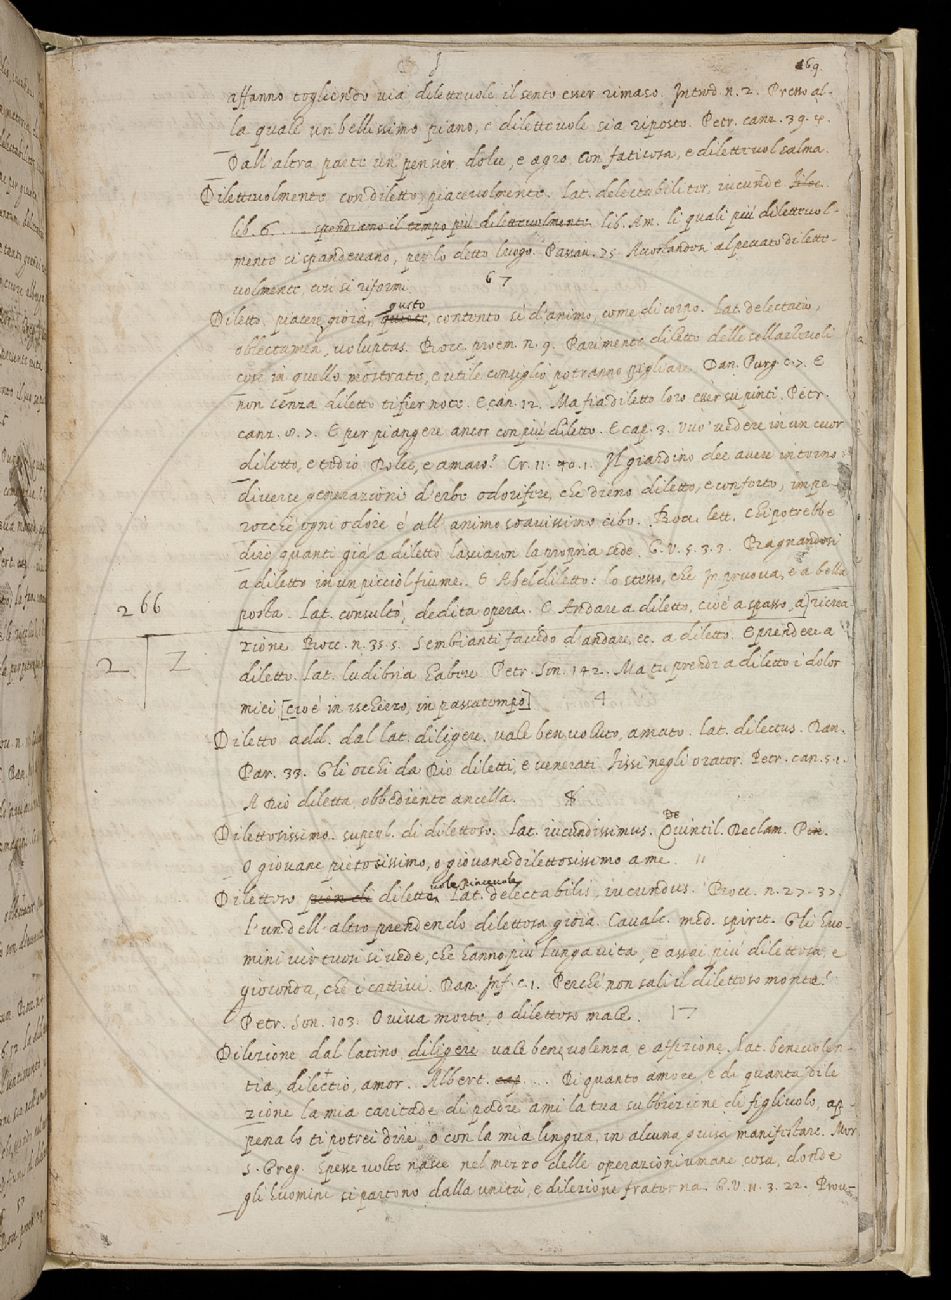 169
affanno togliendo via dilettevole il sento esser rimaso. Introd. n. 2. Presso al-
la quale un bellissimo piano, e dilettevole sia riposto. Petr. canz. 39. 4.
Dall'altra parte un pensier dolce, e agro. Con faticosa, e dilettevol salma.
Dilettevolmente con diletto, piacevolmente. Lat. delectabiliter, iucunde
lib. 6. ... spondiamo il tempo più dilettevolmente. lib. Am. li quali più dilettevol-
mente si spandevano, per lo detto luogo. Passav. 75 Accostandosi al peccato dilette-
volmente, cui si riformi. 67
Diletto. piacere, gioia, gusto, contento sì d'animo, come di corpo. Lat. delectatio,
oblectamen, voluptas. Bocc. proem. n. 9. Parimente diletto delle sollazzevoli
cose in quelle mostrate, e utile consiglio potranno pigliare. Dan. Purg. c. 7. E
non senza diletto ti fier note. E can. 12. Ma fia diletto loro esser su pinti. Petr.
canz. 8. 7. E per piangere ancor con più diletto. E cap. 3. Vuo' vedere in un cuor
diletto, e tedio Dolce, e amaro? Cr. 11. 40. 1. Il giardino dee avere intorno
diverse generazioni d'erbe odorifere, che dieno diletto, e conforto, impe-
rocchè ogni odore è all'animo soavissimo cibo. Bocc. lett. Chi potrebbe
dire quanti già a diletto lasciaron la propria sede. G. V. 5. 3. 3. Bagnandosi
a diletto in un picciol fiume. E A bel diletto: lo stesso, che In pruova, e a bella
266
posta. Lat. consultò, dedita opera. E Andare a diletto, cioè a spasso, a ricrea
zione. Bocc. n. 35. 5. Sembianti facendo d'andare, ec. a diletto. E prendere a
2 2
diletto. Lat. ludibria habere. Petr. Son. 142. Ma tu prendi a diletto i dolor
miei [cioè in ischerzo, in passatempo] 4
Diletto add. dal lat. diligere. vale benvoluto, amato. Lat. dilectus. Dan.
Par. 33. Gli occhi da Dio diletti, e venerati Fissi negli orator. Petr. can. 5. 1.
A Dio diletta obbediente ancella.
Dilettosissimo. superl. di dilettoso. Lat. iucundissimus. Quintil. Declam.
O giovane pietosissimo, o giovane dilettosissimo a me. 11
Dilettoso pien di dilettevole, piacevole Lat. delectabilis, iucundus. Bocc. n. 27. 37.
l'un dell'altro prendendo dilettosa gioia. Cavalc. med. spirit. Gli huo-
mini virtuosi si vede, che hanno più lunga vita, e assai più dilettosa, e
gioconda, che i cattivi. Dan. Inf. c. 1. Perchè non sali il dilettoso monte?
Petr. Son. 103. O viva morte, o dilettoso male. 17
Dilezione dal latino diligere vale benevolenza e affezione. Lat. benevolen-
tia, dilectio, amor. Albert. cap ... Di quanto amore, e di quanta dile
zione la mia caritade di padre ami la tua subbiezione di figliuolo, ap-
pena lo ti potrei dire, o con la mia lingua, in alcuna guisa manifestare. Mor.
S. Greg. Spesse volte nasce nel mezzo delle operazioni umane cosa, donde
gli huomini si partono dalla unità, e dilezione fraterna. G. V. 11. 3. 22. Prou-